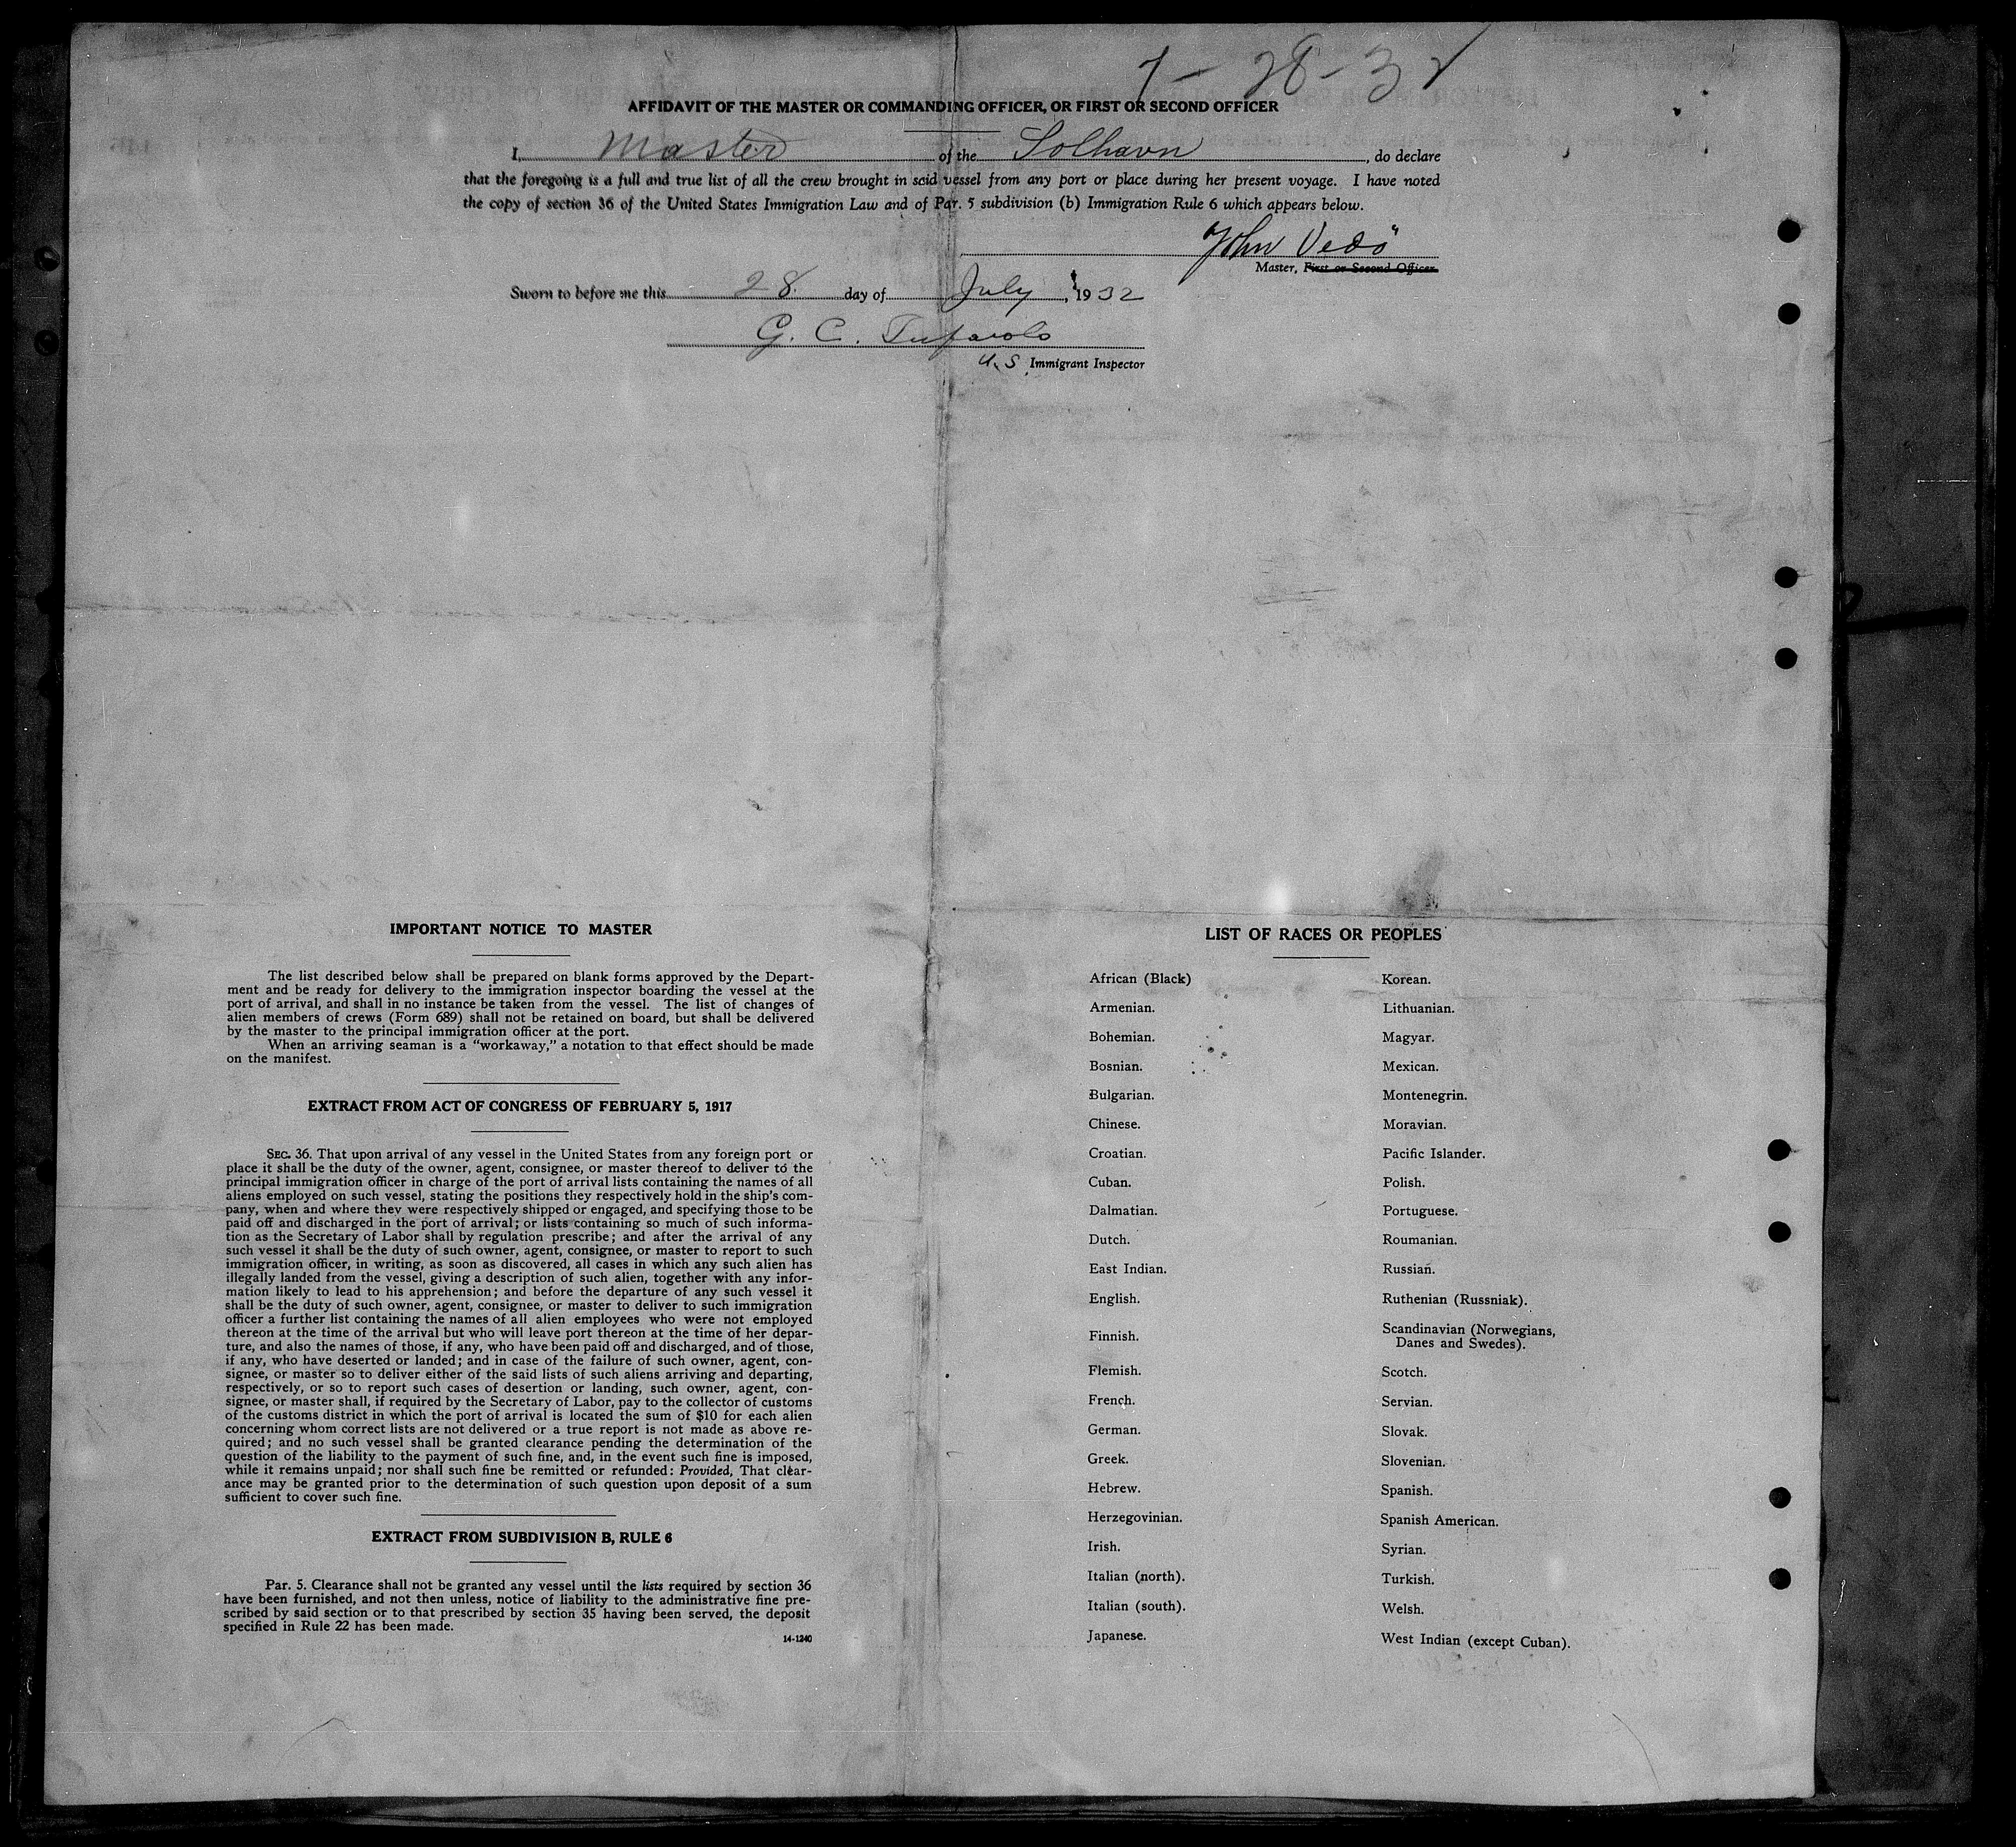 7-28-32
AFFIDAVIT OF THE MASTER OR COMMANDING OFFICER, OR FIRST OR SECOND OFFICER
I, Master of the Solhavn, do declare
that the foregoing is a full and true list of all the crew brought in said vessel from any port or place during her present voyage. I have noted
the copy of section 36 of the United States Immigration Law and of Par. 5 subdivision (b) Immigration Rule 6 which appears below.
John
Master, First or Second Officer.
Sworn to before me this 28 day of July, 1932
G. C.
U.S. Immigrant Inspector
IMPORTANT NOTICE TO MASTER
The list described below shall be prepared on blank forms approved by the Depart-
ment and be ready for delivery to the immigration inspector boarding the vessel at the
port of arrival, and shall in no instance be taken from the vessel. The list of changes of
alien members of crews (Form 689) shall not be retained on board, but shall be delivered
by the master to the principal immigration officer at the port.
When an arriving seaman is a “workaway,” a notation to that effect should be made
on the manifest.
EXTRACT FROM ACT OF CONGRESS OF FEBRUARY 5, 1917
SEC. 36. That upon arrival of any vessel in the United States from any foreign port or
place it shall be the duty of the owner, agent, consignee, or master thereof to deliver to the
principal immigration officer in charge of the port of arrival lists containing the names of all
aliens employed on such vessel, stating the positions they respectively hold in the ship's com-
pany, when and where they were respectively shipped or engaged, and specifying those to be
paid off and discharged in the port of arrival; or lists containing so much of such informa-
tion as the Secretary of Labor shall by regulation prescribe; and after the arrival of any
such vessel it shall be the duty of such owner, agent, consignee, or master to report to such
immigration officer, in writing, as soon as discovered, all cases in which any such alien has
illegally landed from the vessel, giving a description of such alien, together with any infor-
mation likely to lead to his apprehension; and before the departure of any such vessel it
shall be the duty of such owner, agent, consignee, or master to deliver to such immigration
officer a further list containing the names of all alien employees who were not employed
thereon at the time of the arrival but who will leave port thereon at the time of her depar-
ture, and also the names of those, if any, who have been paid off and discharged, and of those,
if any, who have deserted or landed; and in case of the failure of such owner, agent, con-
signee, or master so to deliver either of the said lists of such aliens arriving and departing,
respectively, or so to report such cases of desertion or landing, such owner, agent, con-
signee, or master shall, if required by the Secretary of Labor, pay to the collector of customs
of the customs district in which the port of arrival is located the sum of $10 for each alien
concerning whom correct lists are not delivered or a true report is not made as above re-
quired; and no such vessel shall be granted clearance pending the determination of the
question of the liability to the payment of such fine, and, in the event such fine is imposed,
while it remains unpaid; nor shall such fine be remitted or refunded: Provided, That clear-
ance may be granted prior to the determination of such question upon deposit of a sum
sufficient to cover such fine.
EXTRACT FROM SUBDIVISION B, RULE 6
Par. 5. Clearance shall not be granted any vessel until the lists required by section 36
have been furnished, and not then unless, notice of liability to the administrative fine pre-
scribed by said section or to that prescribed by section 35 having been served, the deposit
specified in Rule 22 has been made.
14-1240
LIST OF RACES OR PEOPLES
African (Black)
Armenian.
Bohemian.
Bosnian.
Bulgarian.
Chinese.
Croatian.
Cuban.
Dalmatian.
Dutch.
East Indian.
English.
Finnish.
Flemish.
French.
German.
Greek.
Hebrew.
Herzegovinian.
Irish.
Italian (north).
Italian (south).
Japanese.
Korean.
Lithuanian.
Magyar.
Mexican.
Montenegrin.
Moravian.
Pacific Islander.
Polish.
Portuguese.
Roumanian.
Russian.
Ruthenian (Russniak).
Scandinavian (Norwegians,
Danes and Swedes).
Scotch.
Servian.
Slovak.
Slovenian.
Spanish.
Spanish American.
Syrian.
Turkish.
Welsh.
West Indian (except Cuban).